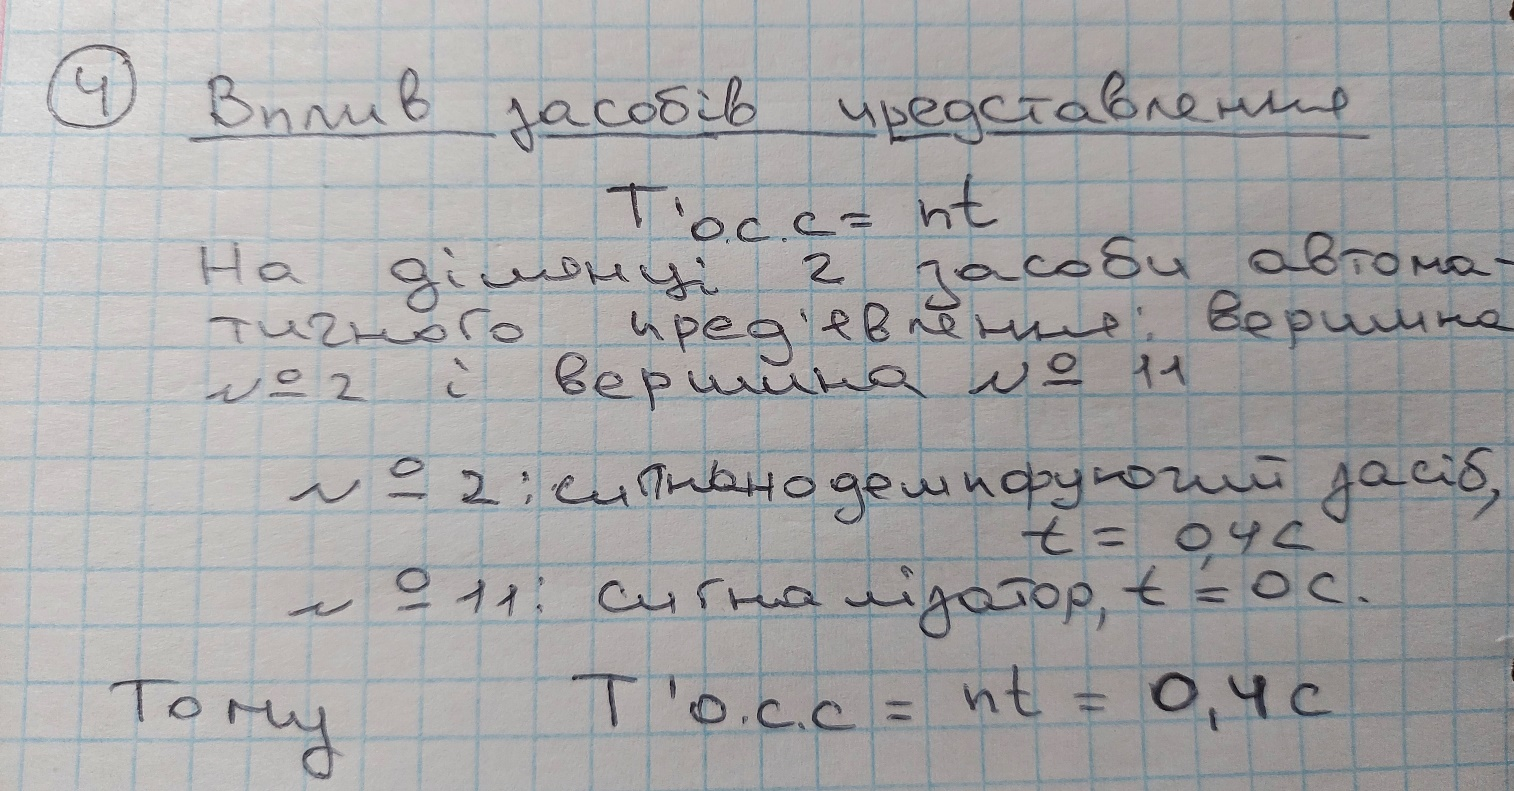 4 Вплив засобів представлення
T'о.с.с = nt
На ділянці 2 засоби автома-
тичного пред'явлення: вершина
№ 2 і вершина № 11
№ 2: сигнальнодемпфуючий засіб,
t = 0,4 с
№ 11: сигналізатор, t = 0 с.
Тому T'о.с.с = nt = 0,4 с